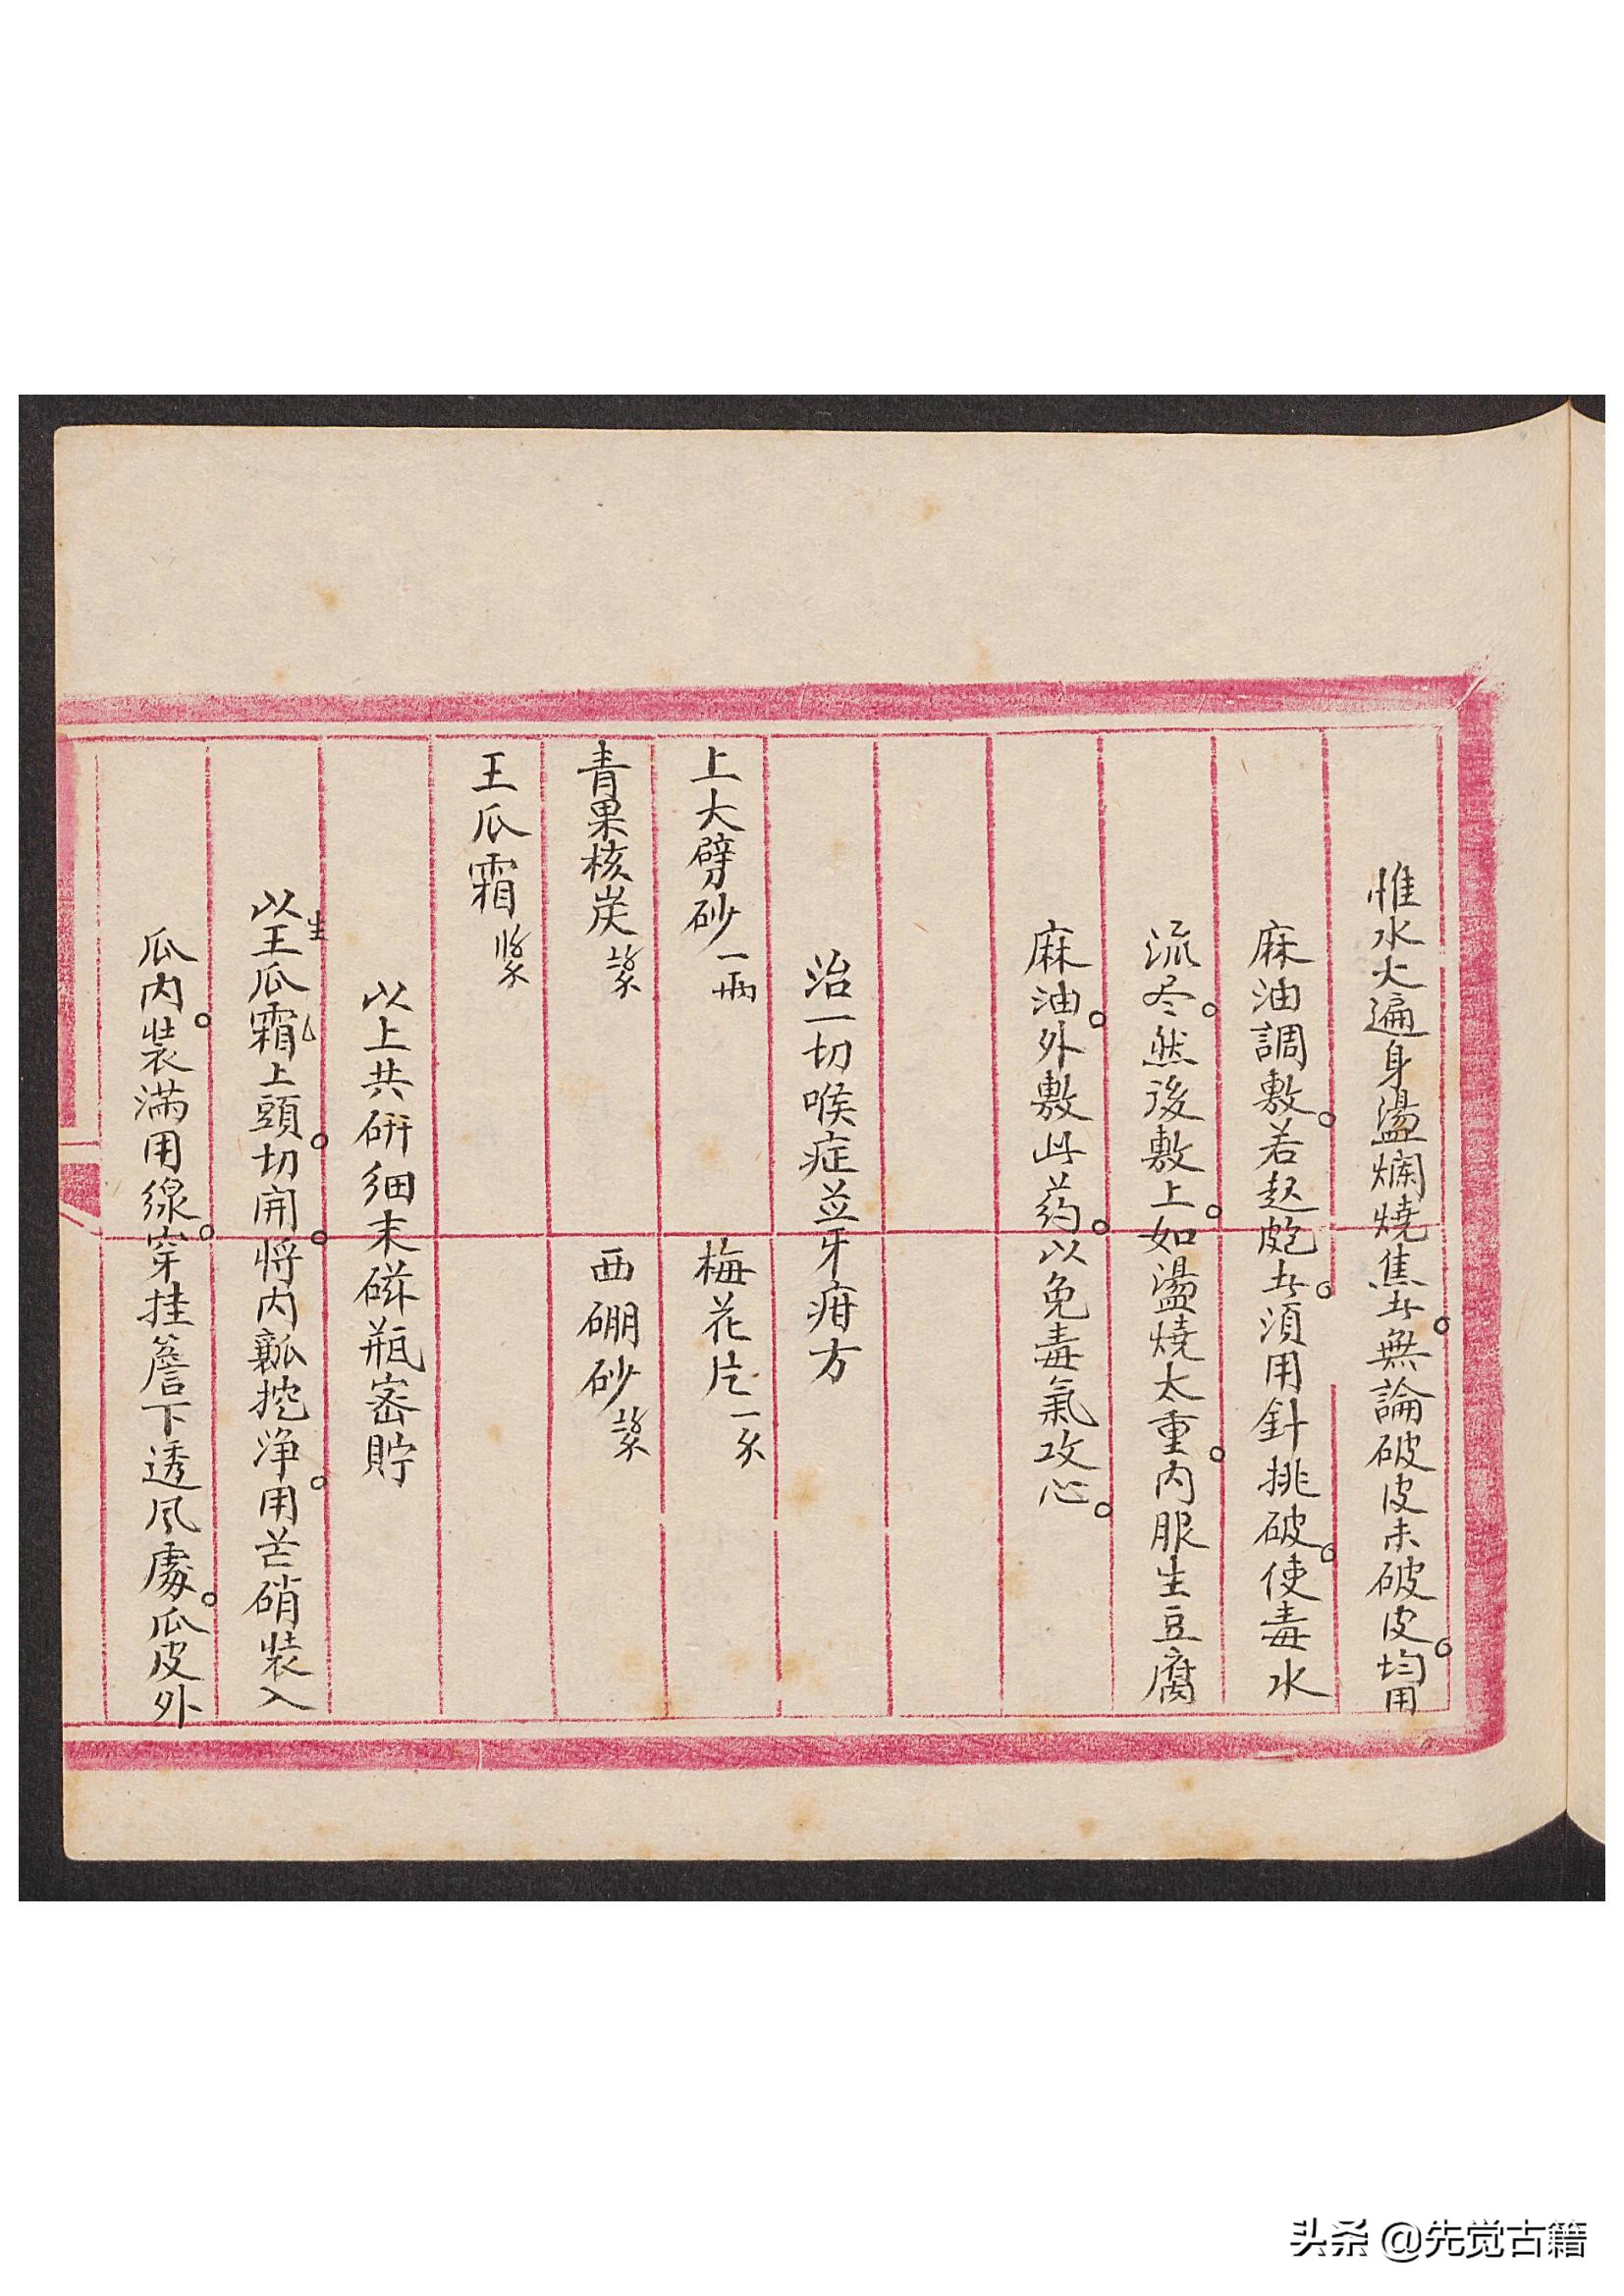 惟水火遍身盪爛燒焦者無論破皮未破皮。均用
麻油調敷。若起皰者。須用針挑破。使毒水
流尽。然後敷上。如盪燒太重。内服生豆腐
麻油。外敷此药。以免毒氣攻心。
治一切喉症並牙疳方
上大劈砂一両 梅花片一
青果核炭 西硼砂
王瓜霜
以上共研細末磁瓶密貯
以生王瓜霜上頭。切開。将内瓤挖净。用芒硝装入
瓜内。装滿用線。穿挂簷下透风處。瓜皮外
头条 @先觉古籍